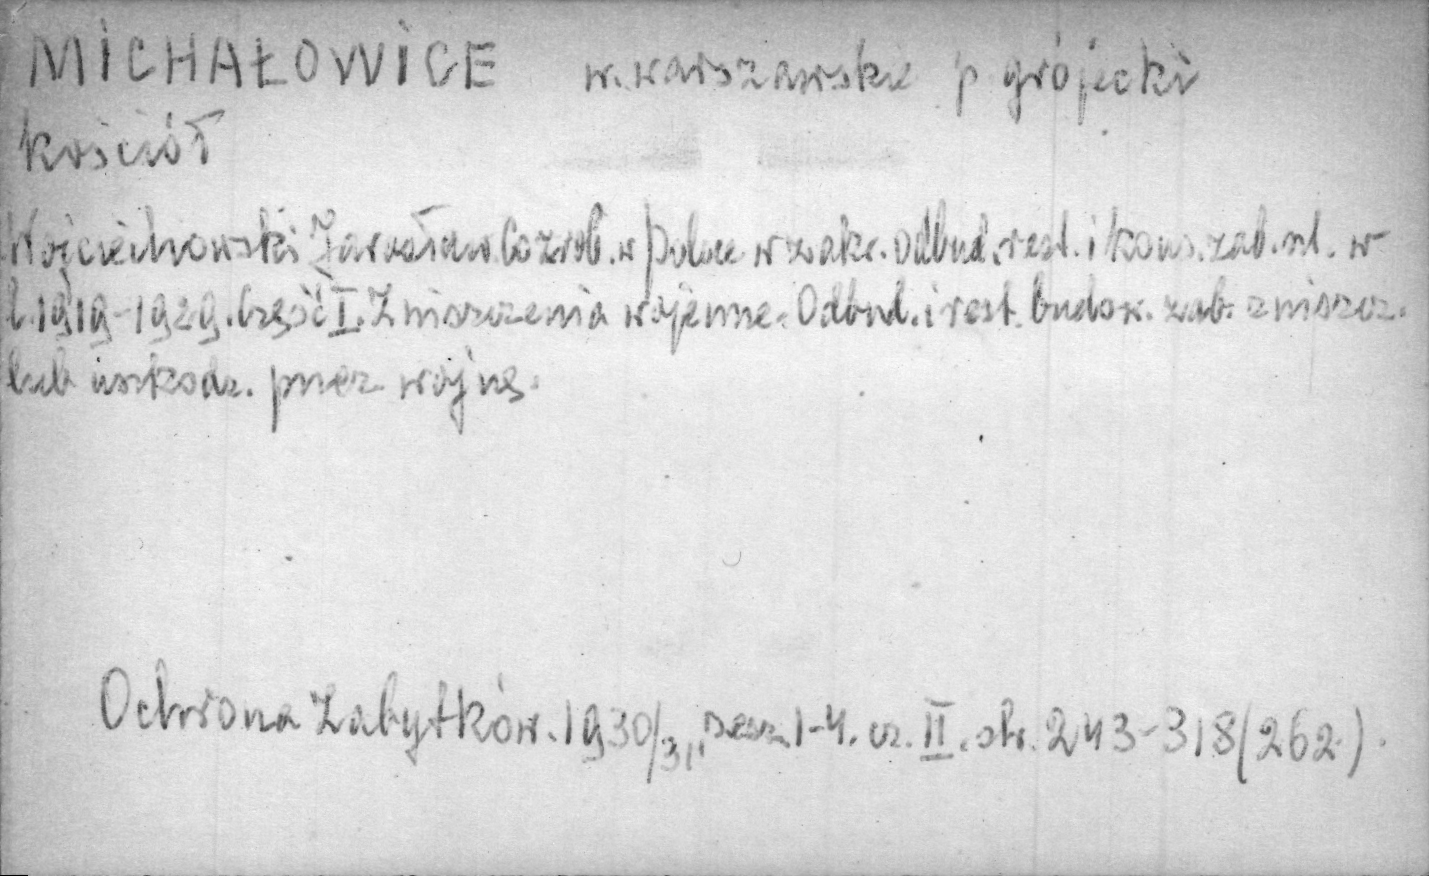 MICHAŁOWICE w. warszawskie p grójecki
kościół
Wojciechowski Jarosław Co zrob. w Polsce w zakr. odbud. rest. i kons. zab. szt. w
l. 1919-1929. Część I. Zniszczenia wojenne. Odbud. i rest. budow. zab. zniszcz.
lub uszkodz. przez wojnę.
Ochrona Zabytków. 1930/31, zesz. 1-4. cz. II. str. 243-318 (262).